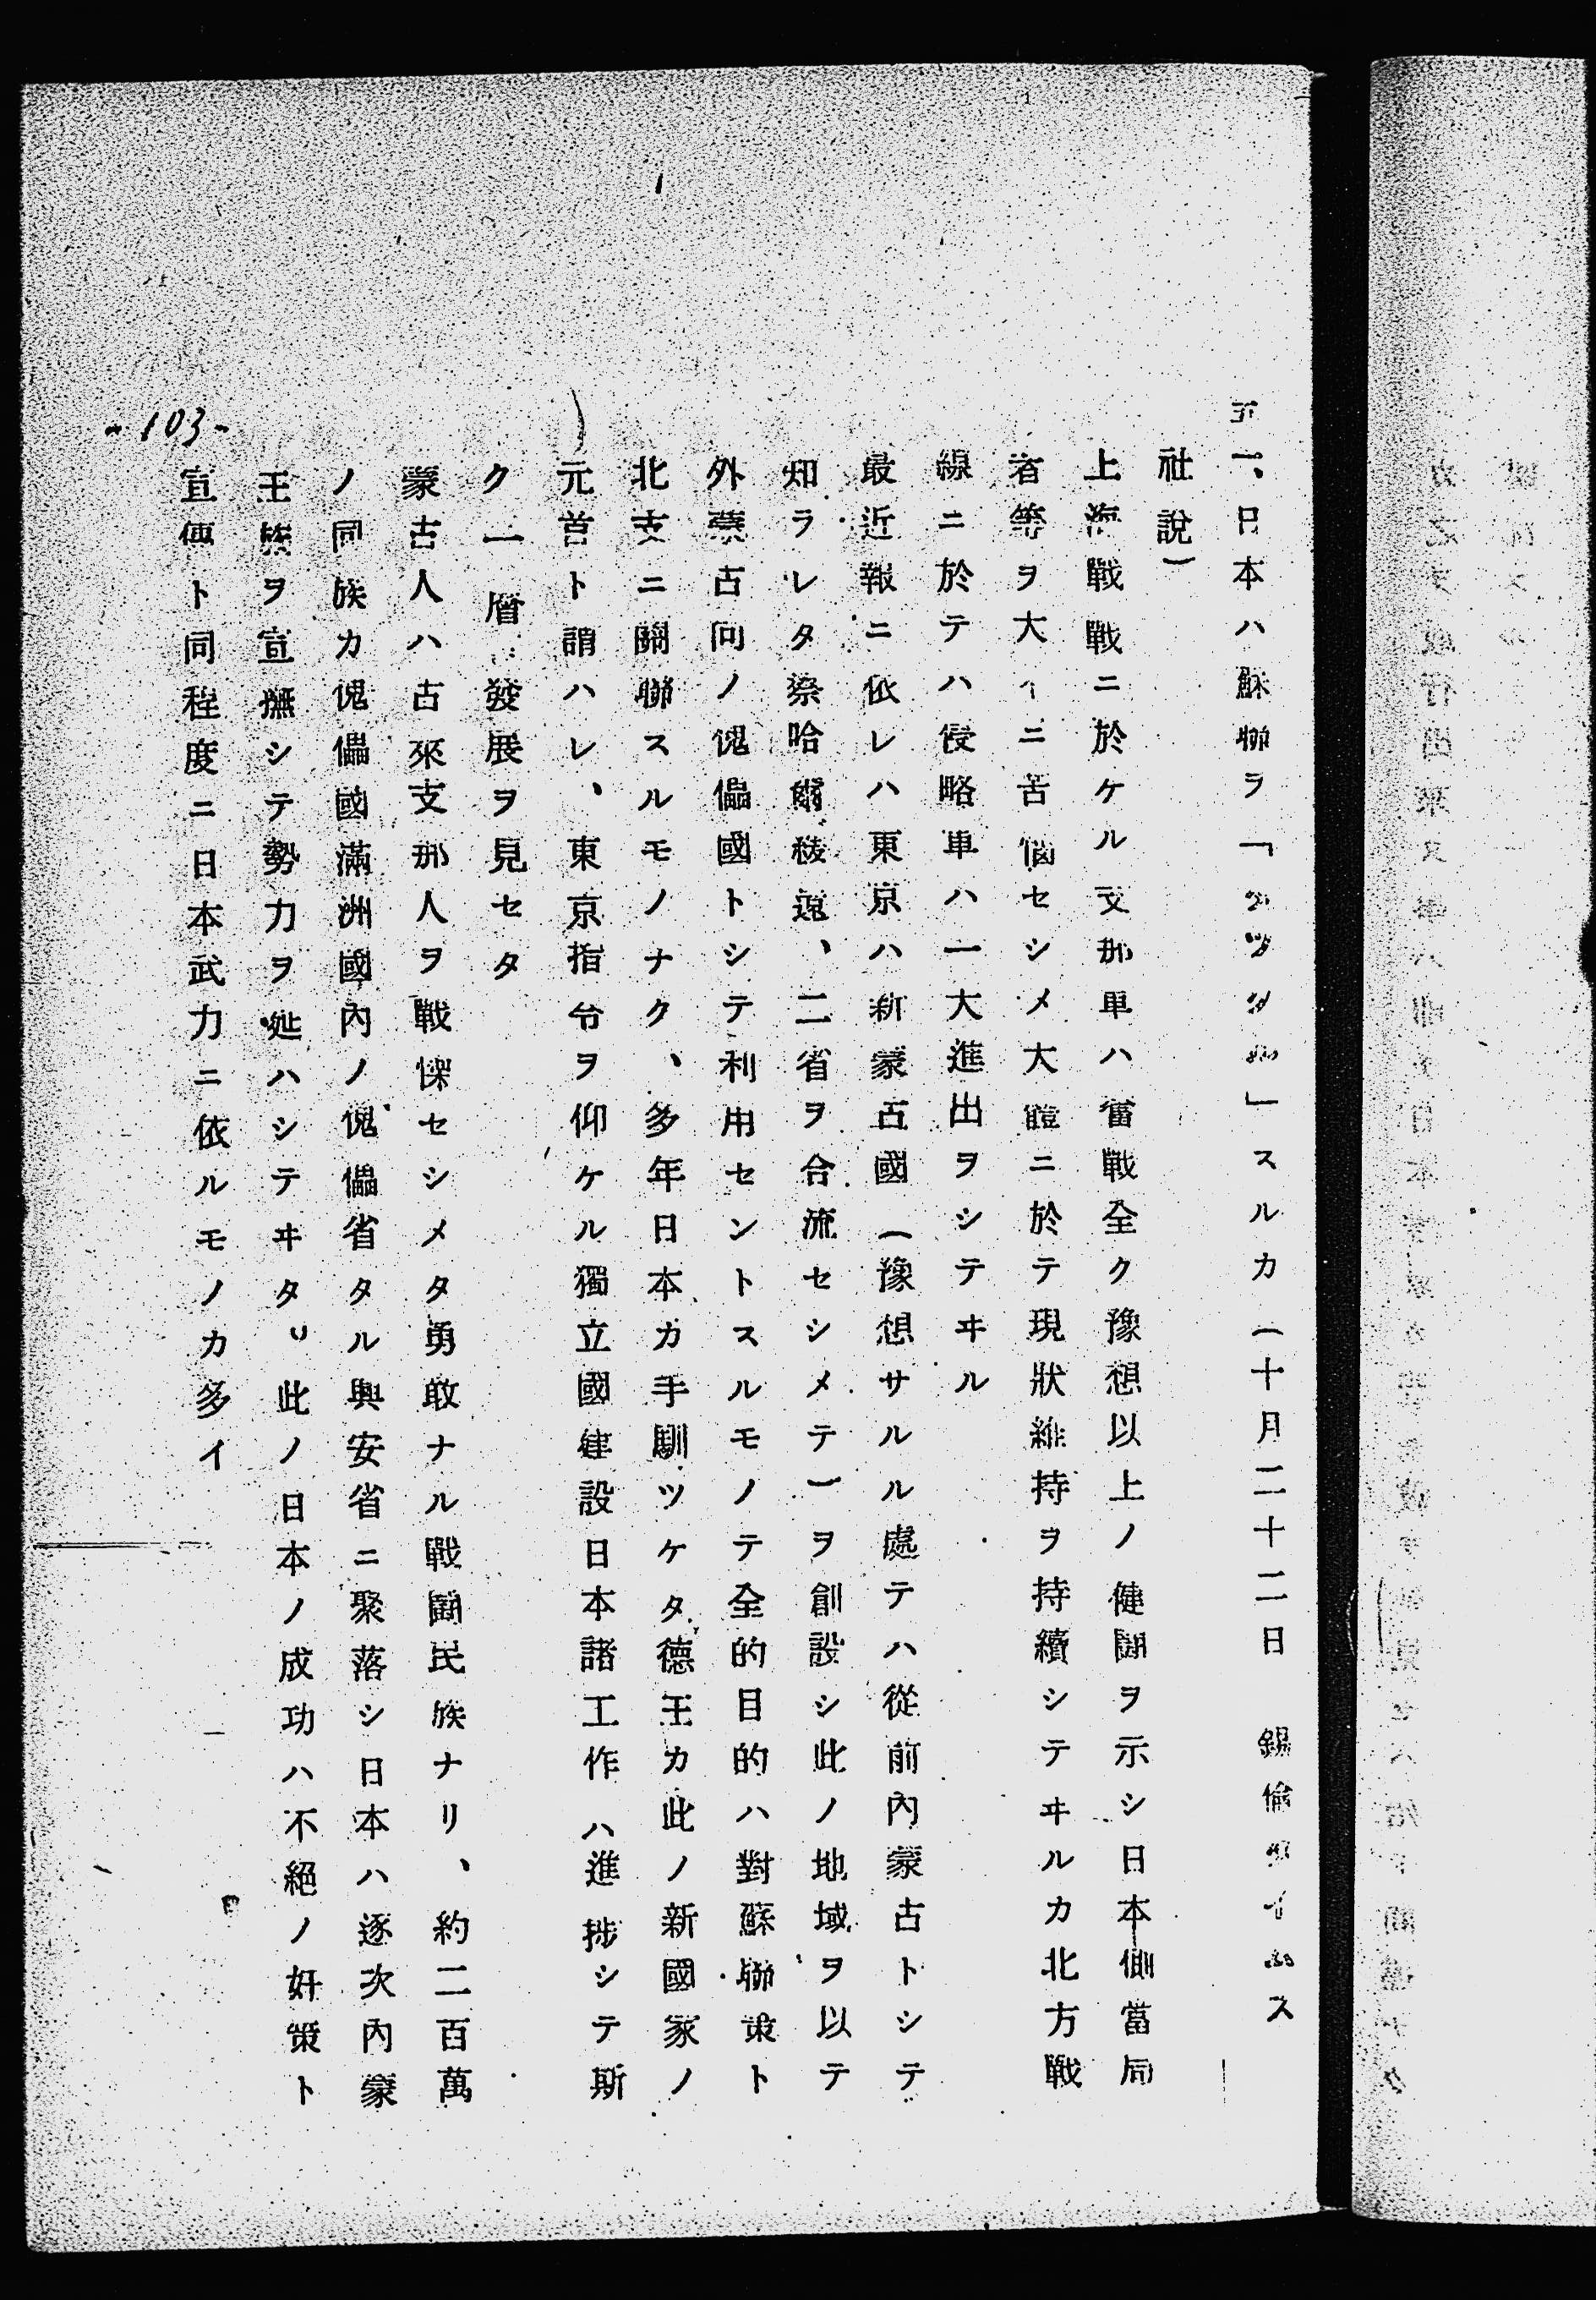 五一、日本ハ蘇聯ヲ「タツクル」スルカ(十月二十二日 錫倫タイムス
社說)
上海戰戰ニ於ケル支那軍ハ奮戰全ク豫想以上ノ健鬪ヲ示シ日本側當局
者等ヲ大イニ苦惱セシメ大體ニ於テ現狀維持ヲ持續シテヰルカ北方戰
線ニ於テハ侵略軍ハ一大進出ヲシテヰル
最近報ニ依レハ東京ハ新蒙古國(豫想サルル處テハ從前內蒙古トシテ
知ラレタ察哈爾綏遠、二省ヲ合流セシメテ)ヲ創設シ此ノ地域ヲ以テ
外蒙古向ノ傀儡國トシテ利用セントスルモノテ全的目的ハ對蘇聯策ト
北支ニ關聯スルモノナク、多年日本カ手馴ツケタ德王カ此ノ新國家ノ
元首ト謂ハレ、東京指令ヲ仰ケル獨立國建設日本諸工作ハ進捗シテ斯
ク一層發展ヲ見セタ
蒙古人ハ古來支那人ヲ戰慄セシメタ勇敢ナル戰鬪民族ナリ、約二百萬
ノ同族カ傀儡國滿洲國內ノ傀儡省タル興安省ニ聚落シ日本ハ逐次內蒙
王族ヲ宣撫シテ勢力ヲ延ハシテヰタリ此ノ日本ノ成功ハ不絕ノ奸策ト
宣傳ト同程度ニ日本武力ニ依ルモノカ多イ
-103-